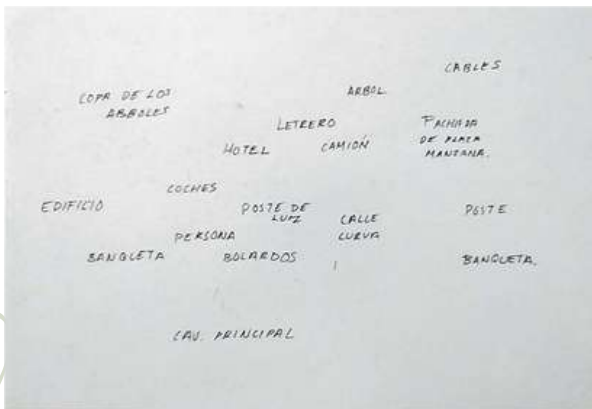 CABLES
COPA DE LOS
ARBOLES
ARBOL
LETRERO
FACHADA
DE PLAZA
MANZANA.
HOTEL
CAMIÓN
COCHES
EDIFICIO
POSTE DE
LUZ
CALLE
CURVA
POSTE
PERSONA
BANQUETA
BOLARDOS
BANQUETA.
CAV. PRINCIPAL